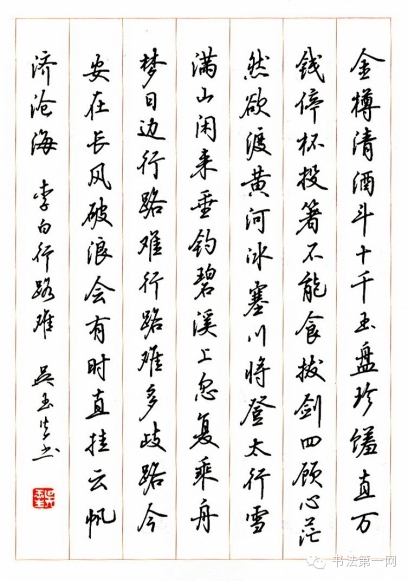 金樽清酒斗十千玉盘珍馐直万
钱停杯投箸不能食拔剑四顾心茫
然欲渡黄河冰塞川将登太行雪
满山闲来垂钓碧溪上忽复乘舟
梦日边行路难行路难多歧路今
安在长风破浪会有时直挂云帆
济沧海 李白行路难 吴玉生书
书法第一网